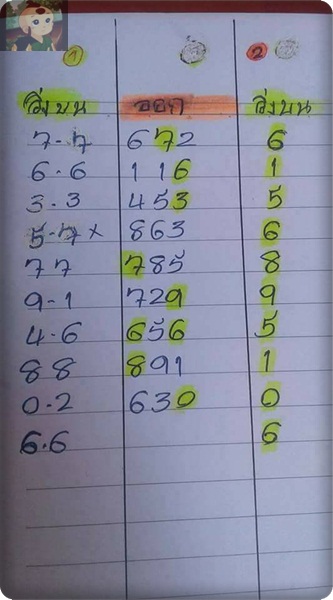 1 2
วิ่งบน ออก วิ่งบน
7-7 672 6
6.6 116 1
3.3 453 5
5-7x 863 6
77 785 8
9-1 729 9
4-6 656 5
88 891 1
0-2 630 0
6.6 6